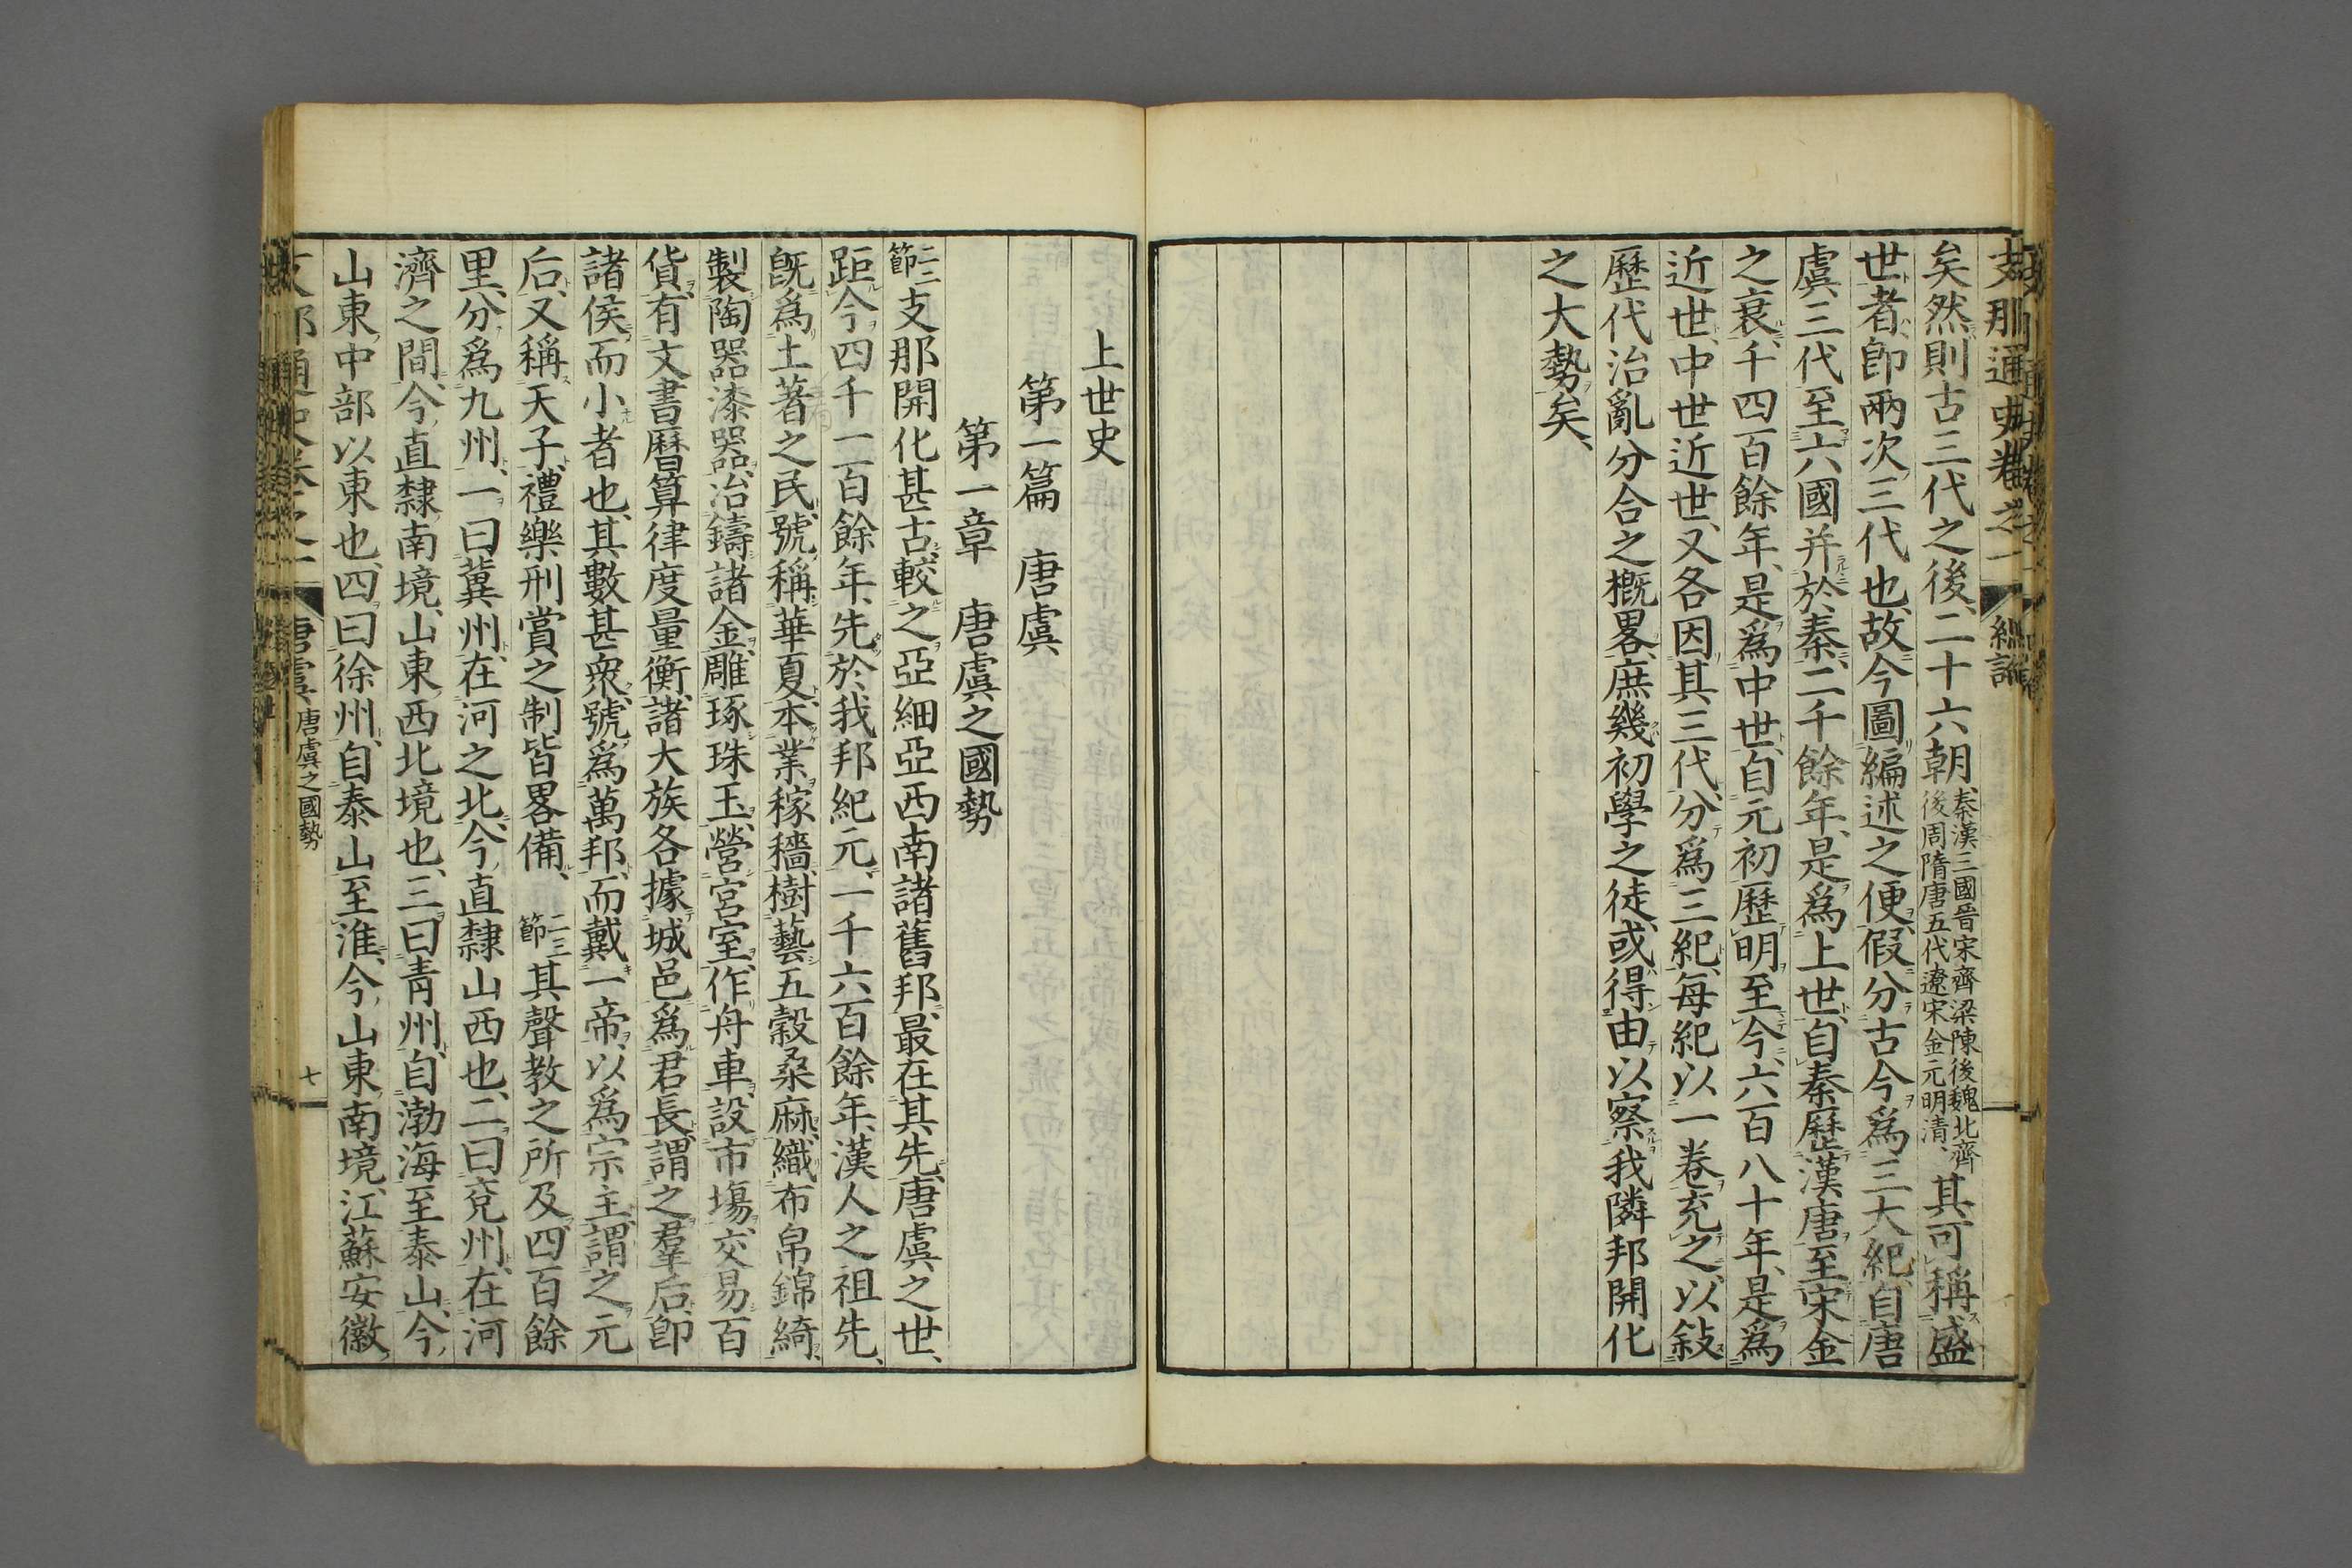 支那通史卷之一 總論
矣然則古三代之後二十六朝、秦漢三國晉宋齊梁陳後魏北齊後周隋唐五代遼宋金元明清、其可稱盛
世者、卽兩次三代也、故今圖編述之便、假分古今爲三大紀、自唐
虞三代至六國并於秦、二千餘年、是爲上世、自秦歷漢唐至宋金
之衰、千四百餘年、是爲中世、自元初歷明至今、六百八十年、是爲
近世、中世近世、又各因其三代、分爲三紀、每紀以一卷充之、以敍
歷代治亂分合之概畧、庶幾初學之徒、或得由以察我隣邦開化
之大勢矣、
上世史
第一篇 唐虞
第一章 唐虞之國勢
二二節支那開化甚古、較之亞細亞西南諸舊邦、最在其先、唐虞之世、
距今四千一百餘年、先於我邦紀元、一千六百餘年、漢人之祖先、
旣爲土著之民、號稱華夏、本業稼穡、樹藝五穀桑麻、織布帛錦綺、
製陶器漆器、冶鑄諸金、雕琢珠玉、營宮室、作舟車、設市場、交易百
貨、有文書曆算律度量衡、諸大族各據城邑爲君長、謂之羣后、卽
諸侯而小者也、其數甚衆、號爲萬邦、而戴一帝、以爲宗主、謂之元
后、又稱天子、禮樂刑賞之制皆畧備、二三節其聲教之所及、四百餘
里、分爲九州、一曰冀州、在河之北、今直隸山西也、二曰兗州、在河
濟之間、今直隸南境、山東西北境也、三曰靑州、自渤海至泰山、今
山東中部以東也、四曰徐州、自泰山至淮、今山東南境、江蘇安徽
支那通史卷之一 唐虞 唐虞之國勢 七